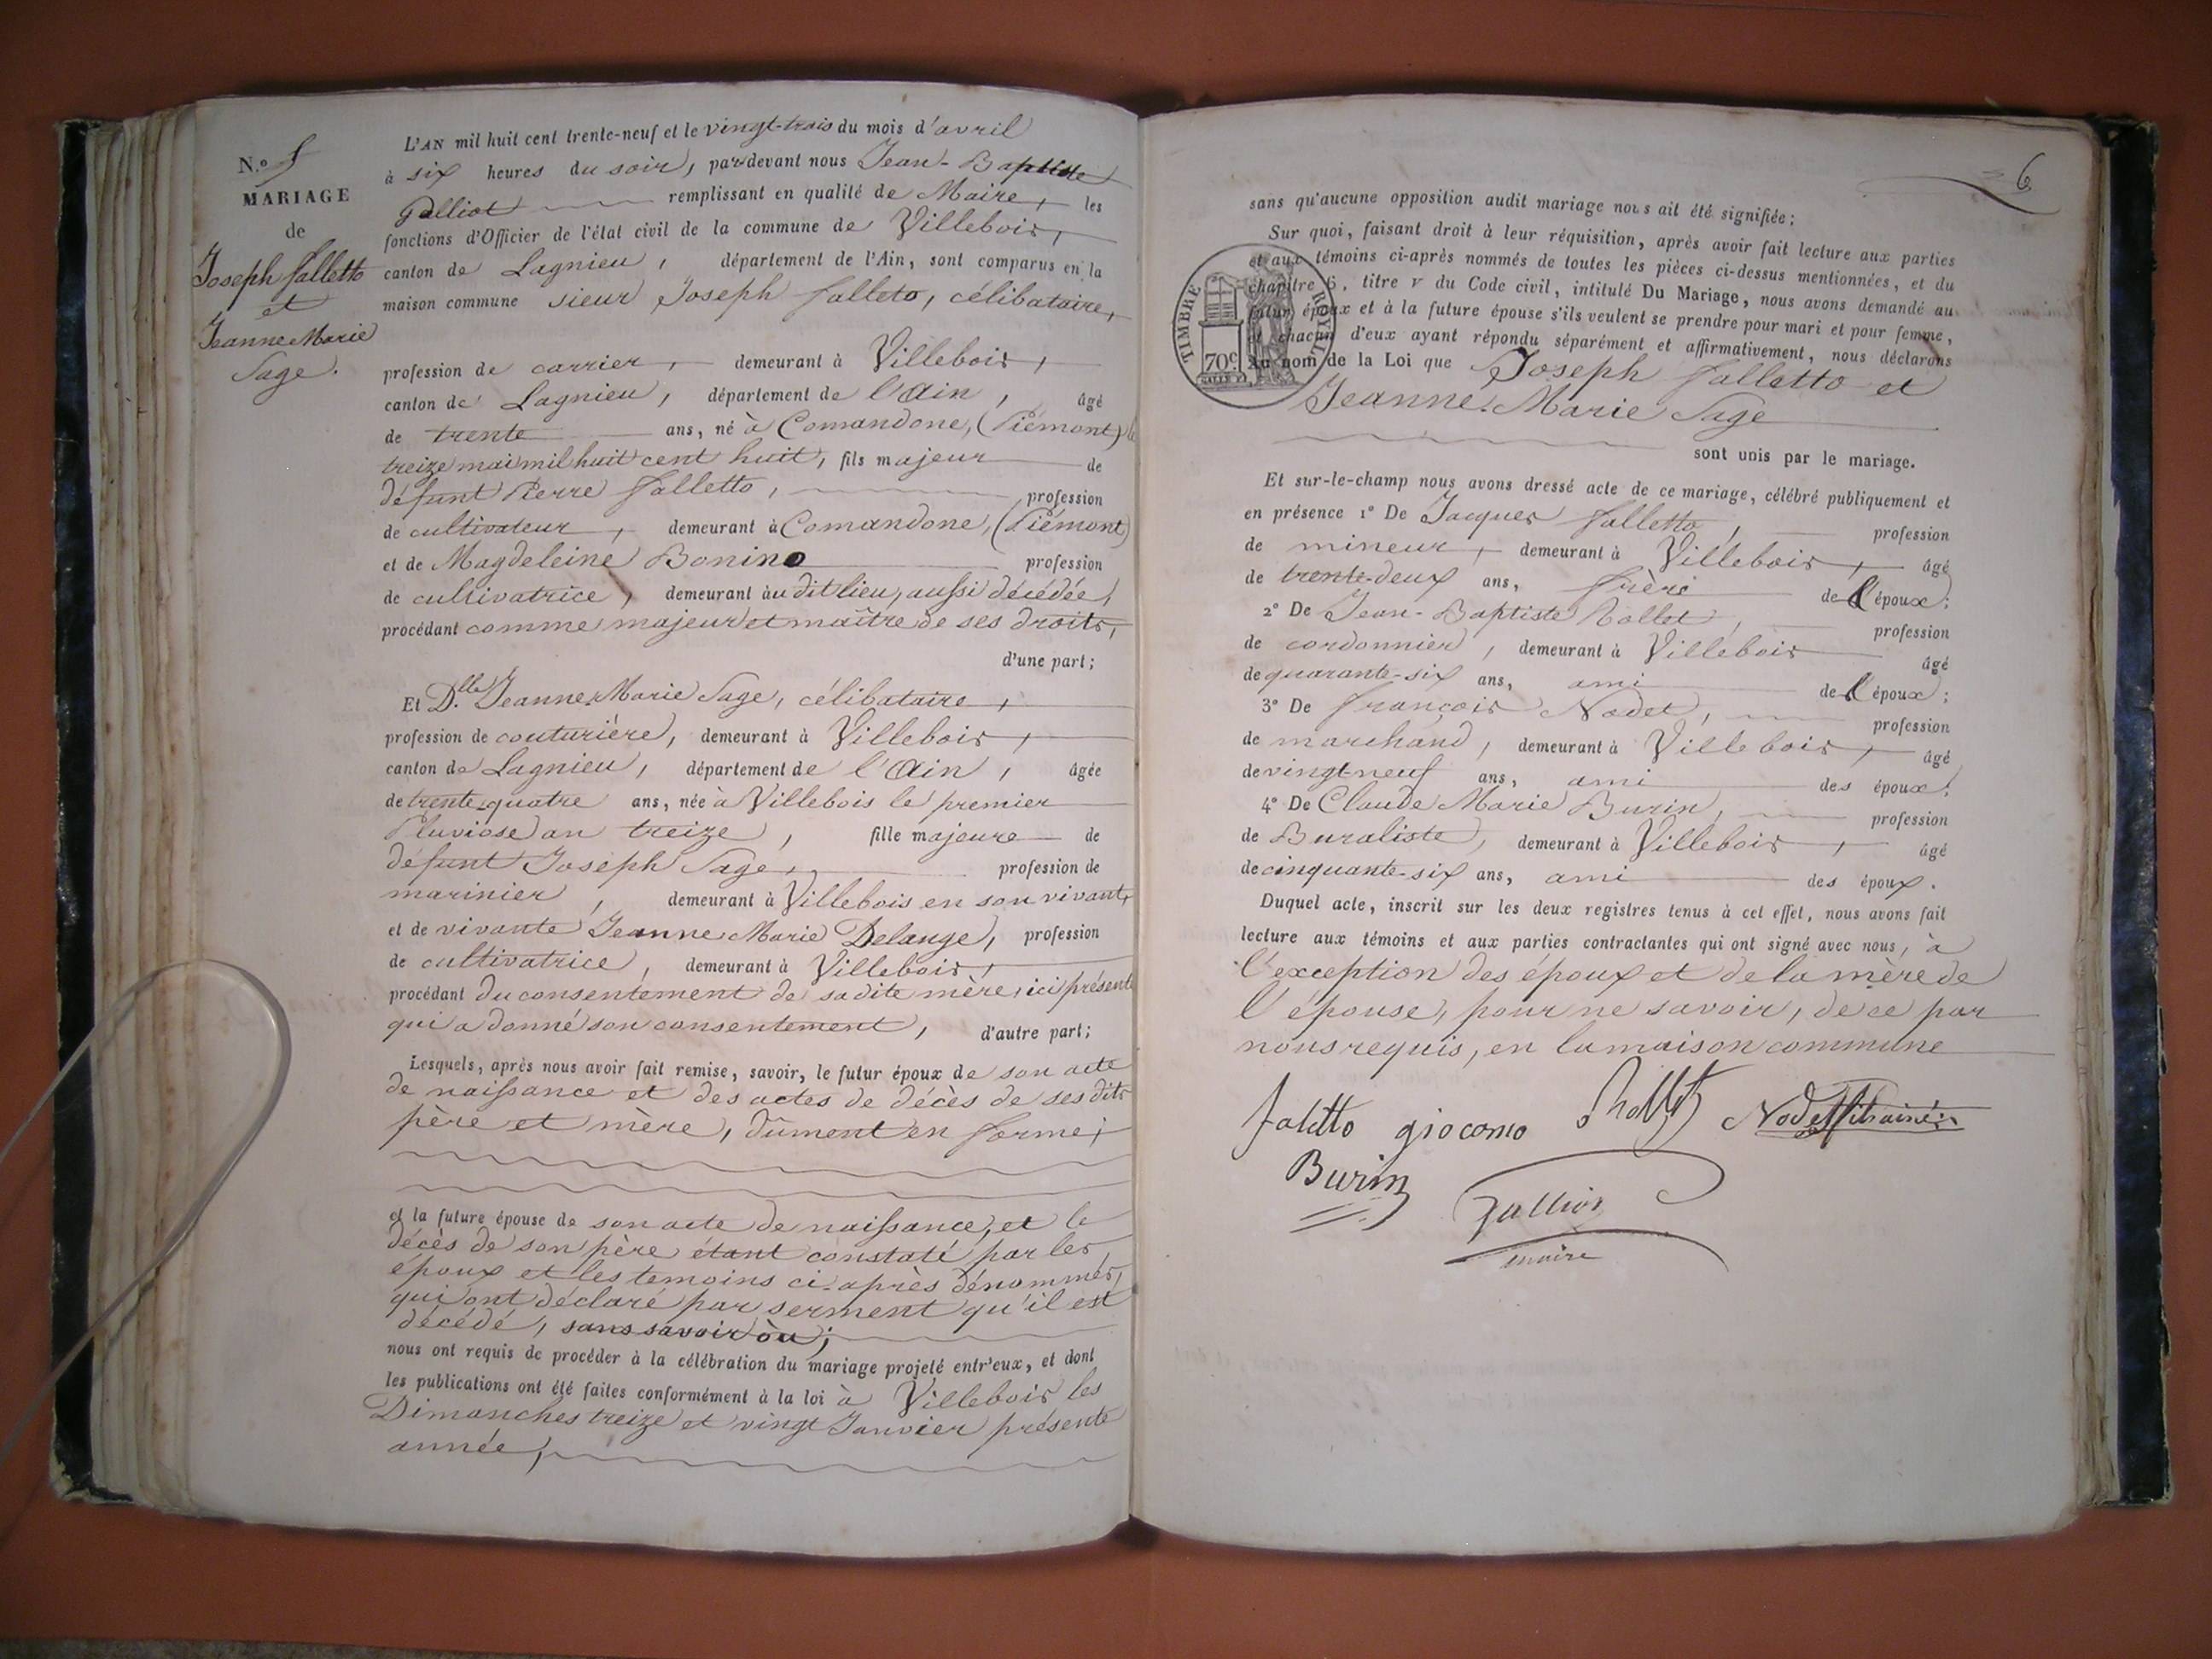 N.o 5
MARIAGE
de
Joseph Falletto
et
Jeanne Marie
Sage.
L'AN mil huit cent trente-neuf et le vingt-trois du mois d'avril
à six heures du soir, par-devant nous Jean-Baptiste
Galliot remplissant en qualité de Maire, les
fonctions d'Officier de l'état civil de la commune de Villebois,
canton de Lagnieu, département de l'Ain, sont comparus en la
maison commune sieur Joseph Falleto, célibataire,
profession de carrier, demeurant à Villebois,
canton de Lagnieu, département de l'Ain, âgé
de trente ans, né à Comandone, (Piémont) le
treize mai mil huit cent huit, fils majeur de
défunt Pierre Falletto, profession
de cultivateur, demeurant à Comandone, (Piémont)
et de Magdeleine Bonino profession
de cultivatrice, demeurant àu dit lieu, aussi décédée,
procédant comme majeur et maître de ses droits,
d'une part;
Et D.lle Jeanne Marie Sage, célibataire,
profession de couturière, demeurant à Villebois,
canton de Lagnieu, département de l'Ain, âgée
de trente-quatre ans, née à Villebois le premier
Pluviose an treize, fille majeure de
défunt Joseph Sage, profession de
marinier, demeurant à Villebois en son vivant,
et de vivante Jeanne Marie Delange, profession
de cultivatrice, demeurant à Villebois,
procédant du consentement de sa dite mère, ici présente
qui a donné son consentement, d'autre part;
Lesquels, après nous avoir fait remise, savoir, le futur époux de son acte
de naissance et des actes de décès de ses dits
père et mère, dûment en forme;
et la future épouse de son acte de naissance, et le
décès de son père étant constaté par les
époux et les temoins ci-après dénommés,
qui ont déclaré par serment qu'il est
décédé, sans savoir òu;
nous ont requis de procéder à la célébration du mariage projeté entr'eux, et dont
les publications ont été faites conformément à la loi à Villebois les
Dimanches treize et vingt Janvier présente
année,
6
sans qu'aucune opposition audit mariage nous ait été signifiée;
Sur quoi, faisant droit à leur réquisition, après avoir fait lecture aux parties
et aux témoins ci-après nommés de toutes les pièces ci-dessus mentionnées, et du
chapitre 6, titre V du Code civil, intitulé Du Mariage, nous avons demandé au
futur époux et à la future épouse s'ils veulent se prendre pour mari et pour femme,
et chacun d'eux ayant répondu séparément et affirmativement, nous déclarons
Au nom de la Loi que Joseph Falletto et
Jeanne Marie Sage
sont unis par le mariage.
TIMBRE ROYAL
70c.
Et sur-le-champ nous avons dressé acte de ce mariage, célébré publiquement et
en présence 1º De Jacques Falletto, profession
de mineur, demeurant à Villebois, âgé
de trente-deux ans, frère de l'époux;
2º De Jean-Baptiste Rollet, profession
de cordonnier, demeurant à Villebois âgé
de quarante-six ans, ami de l'époux;
3º De François Nodet, profession
de marchand, demeurant à Villebois, âgé
de vingt-neuf ans, ami des époux;
4º De Claude Marie Burin, profession
de Buraliste, demeurant à Villebois, âgé
de cinquante-six ans, ami des époux.
Duquel acte, inscrit sur les deux registres tenus à cet effet, nous avons fait
lecture aux témoins et aux parties contractantes qui ont signé avec nous, à
l'exception des époux et de la mère de
l'épouse, pour ne savoir, de ce par
nous requis, en la maison commune
faletto giocomo Rollet Nodet fils ainé
Burin Galliot
maire